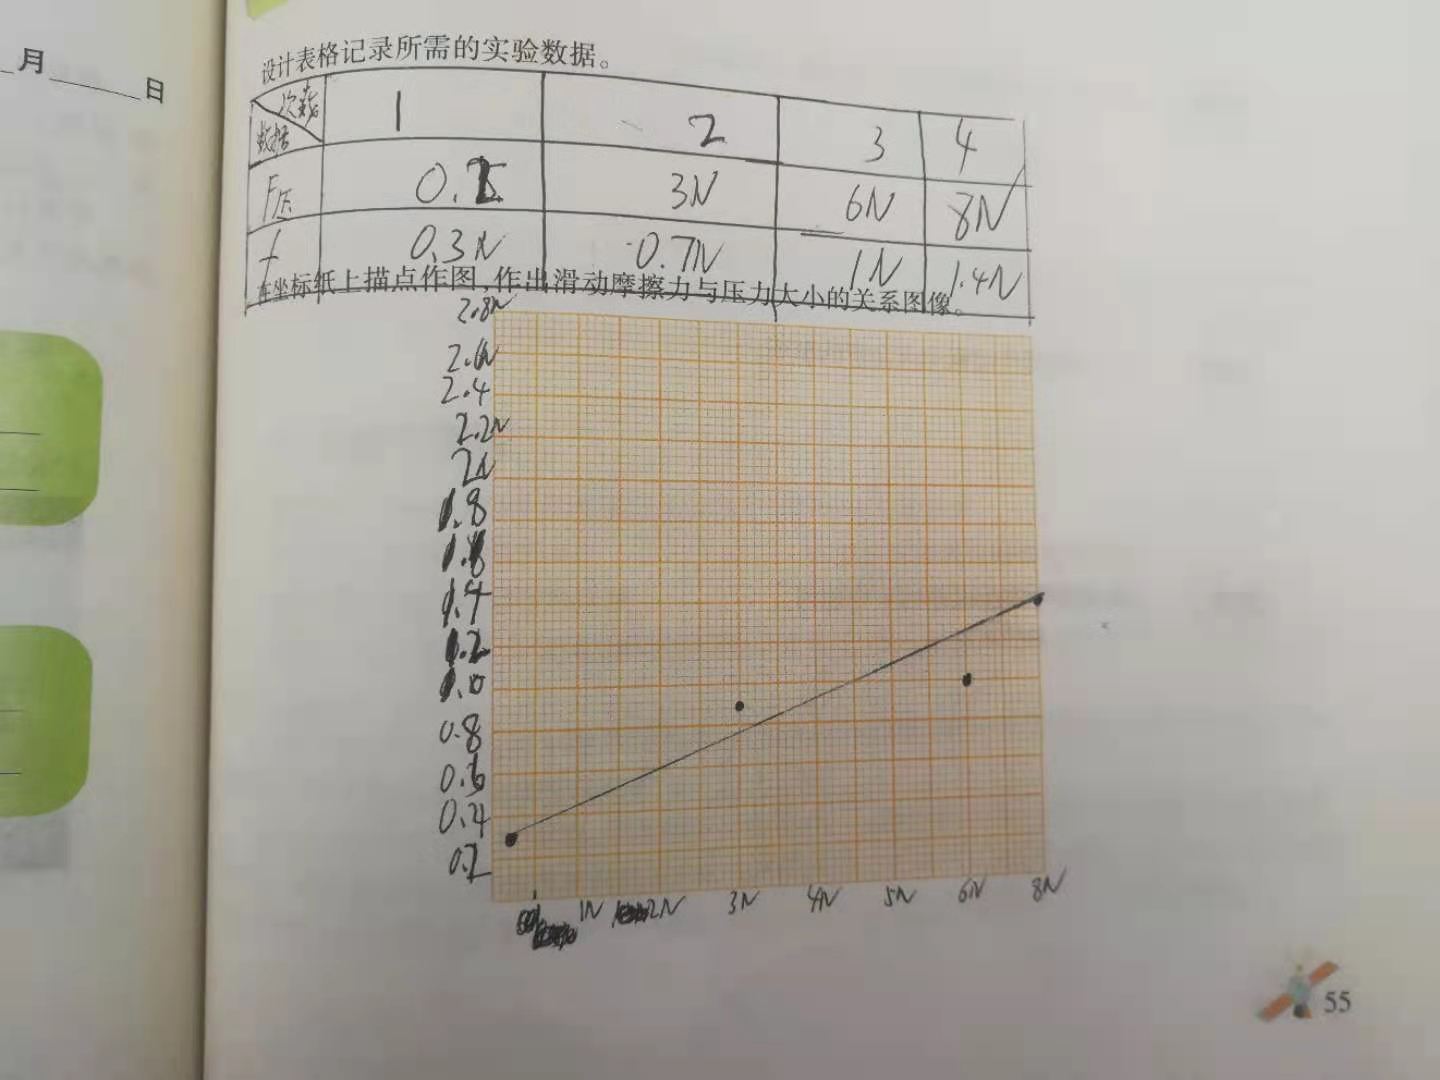 月
日
设计表格记录所需的实验数据。
次数 1 2 3 4
数据
F压 3N 6N 8N
f 0.3N 0.7N 1N 1.4N
在坐标纸上描点作图,作出滑动摩擦力与压力大小的关系图像。
2.8N
2.6N
2.4
2.2N
2N
1.8
1.4
1.2
1.0
0.8
0.6
0.4
0.2
1N 2N 3N 4N 5N 6N 8N
55